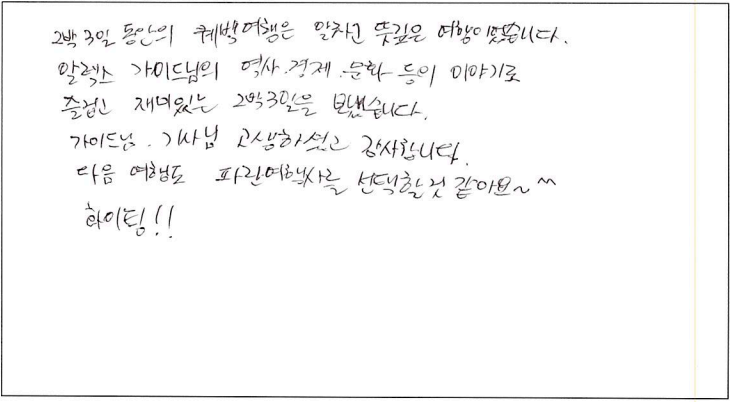 2박3일 동안의 퀘백여행은 알차고 뜻깊은 여행이었습니다.
알렉스 가이드님의 역사.경제.문화 등의 이야기로
즐겁고 재미있는 2박3일을 보냈습니다.
가이드님. 기사님 고생하셨고 감사합니다.
다음 여행도 파란여행사를 선택할것 같아요~^^
화이팅!!